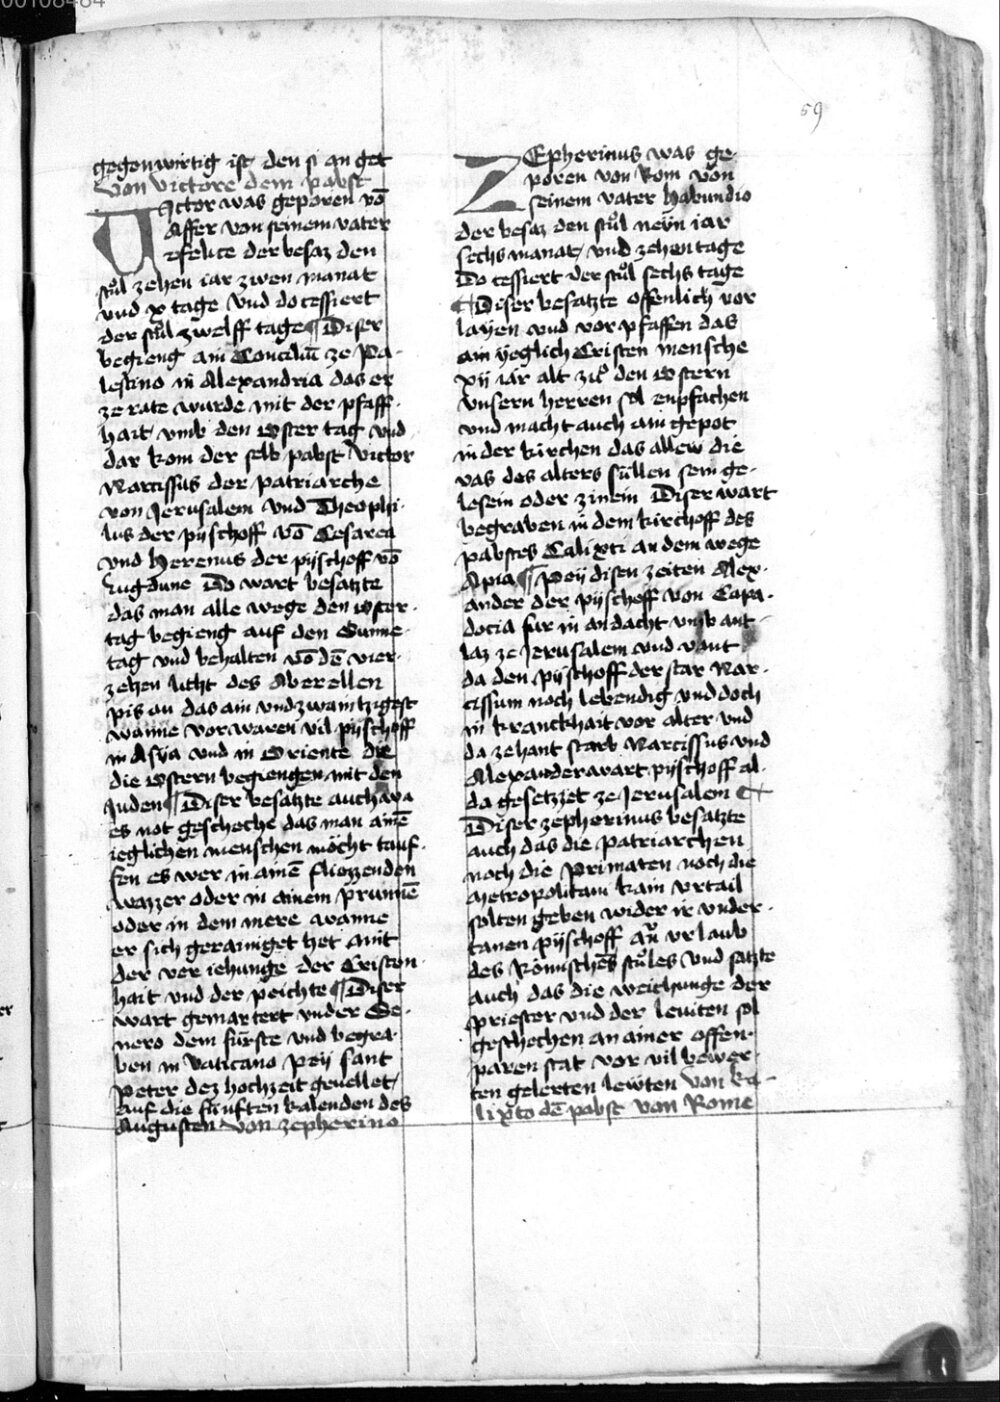 00108484
59
gegenwirtig ist den si an get
Von victore dem pabst
Victor was geporen vō
Affer von seinem vater
felice der besaz den
stůl zehen iar zwen manat
vnd x tage vnd do cessiert
der stůl zwelff tage ¶ Diser
begieng ain Conciliū ze Pa-
lestino in Alexandria das er
ze rate wurde mit der pfaff-
hait vmb den Oster tag vnd
dar kom der selb pabst Victor
Narcissus der patriarche
von Jerusalem vnd Theophi-
lus der pyschoff vō Cesarea
vnd herenus der pyschoff vō
Lugdune Do wart besatzte
das man alle wege den oster-
tag begieng auf den Sunne-
tag vnd behalten vō dē vier-
zehen liecht des Aberellen
pis an das ain vnd zwaintzigest
wanne vor waren vil pyschoff
in Asya vnd in Oriente die
die Ostern begiengen mit den
Juden ¶ Diser besatzte auch wa
es not gescheche das man ainē
ieglichen menschen möcht tauf-
fen es wer in ainē fliozzenden
wazzer oder in ainem prunnē
oder in dem mere wanne
er sich gerainiget het mit
der ver iehunge der Cristen-
hait vnd der peichte ¶ Diser
wart gemartert vnder Se-
uero dem fürste vnd begra-
ben in Vaticano pey sant
Peter dez hochzeit geuellet
auf die fünften kalenden des
Augusten Von zepherino
Zepherinus was ge-
poren von Rom von
seinem vater habundio
der besaz den stůl neyn iar
sechs manat vnd zehen tage
Do cessiert der stůl sechs tage
¶ Diser besatzte offenlich vor
layen vnd vor pfaffen das
ain yeglich Cristen mensche
xij iar alt zů den Ostern
vnsern herren sol enpfachen
vnd macht auch ain gepot
in der kirchen das allew die
vas des alters süllen sein ge-
lesein oder zinein Diser wart
begraben in dem kirchoff des
pabstes Calixti an dem wege
Apia ¶ Pey disen zeiten Alex-
ander der pyschoff von Capa-
docia fur in andacht vmb ant-
laz ze Jerusalem vnd vant
da den pyschoff der stat Nar-
cissum noch lebendig vnd doch
in kranckhait vor alter vnd
da zehant starb Narcissus vnd
Alexander wart pyschoff al-
da gesetzzet ze Jerusalem ¶
Diser zepherinus besatzte
auch das die patriarchen
noch die Primaten noch die
Metropolitani kain vrtail
solten geben wider ir vnder-
tanen pyschoff an vrlaub
des Römischēs stůles vnd satzte
auch das die weichunge der
priester vnd der leuiten sol
geschechen an ainer offen-
paren stat vor vil bewer-
ten gelerten lewten Von Ca-
lixto dē pabst von Rome